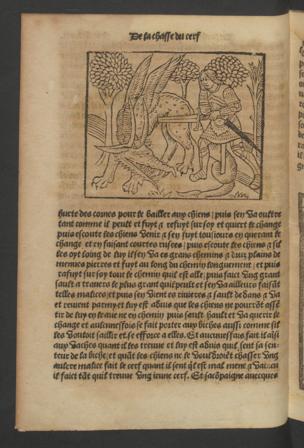 De la chasse du cerf
heurte des cornes pour le bailler aux chiens / puis sen va oultre
tant comme il peult et fuyt a refuyt sur soy et quiert le change
puis escoute les chiens venir a soy fuyt tousiours en querant le
change et en faisant courtes ruses / puis escoute les chiens a sil
les oyt loing de luy il sen va es grans chemins a lieux plains de
menues pierres et fuyt au long du chemin longuement / et puis
refuyt sur soy tout le chemin quil est alle / puis faict ung grant
sault a trauers le plus grant quil peult et sen va ailleurs faisāt
telles malices / et puis sen vient es riuieres a sault de dans a va
et reuient par my et luy est aduis que les chiens ne pourrōt assē
tir de luy en leaue ne en chemin puis sault hault et va querir le
change et aulcunesfois se fait porter aux biches aussi comme sil
les vouloit saillir et se efforce a elles. Et aucunesfois fait il ainsi
aux vaches quant il les treuue et luy est aduis quil sent sa sen
teur de la biche / et quāt les chiens ne le vouldroiēt chasser ung
aultre malice fait le cerf quant il sent ql est mal mene a vain
il faict tāt quil treuue ung ieune cerf. Et sacōpaigne auecques